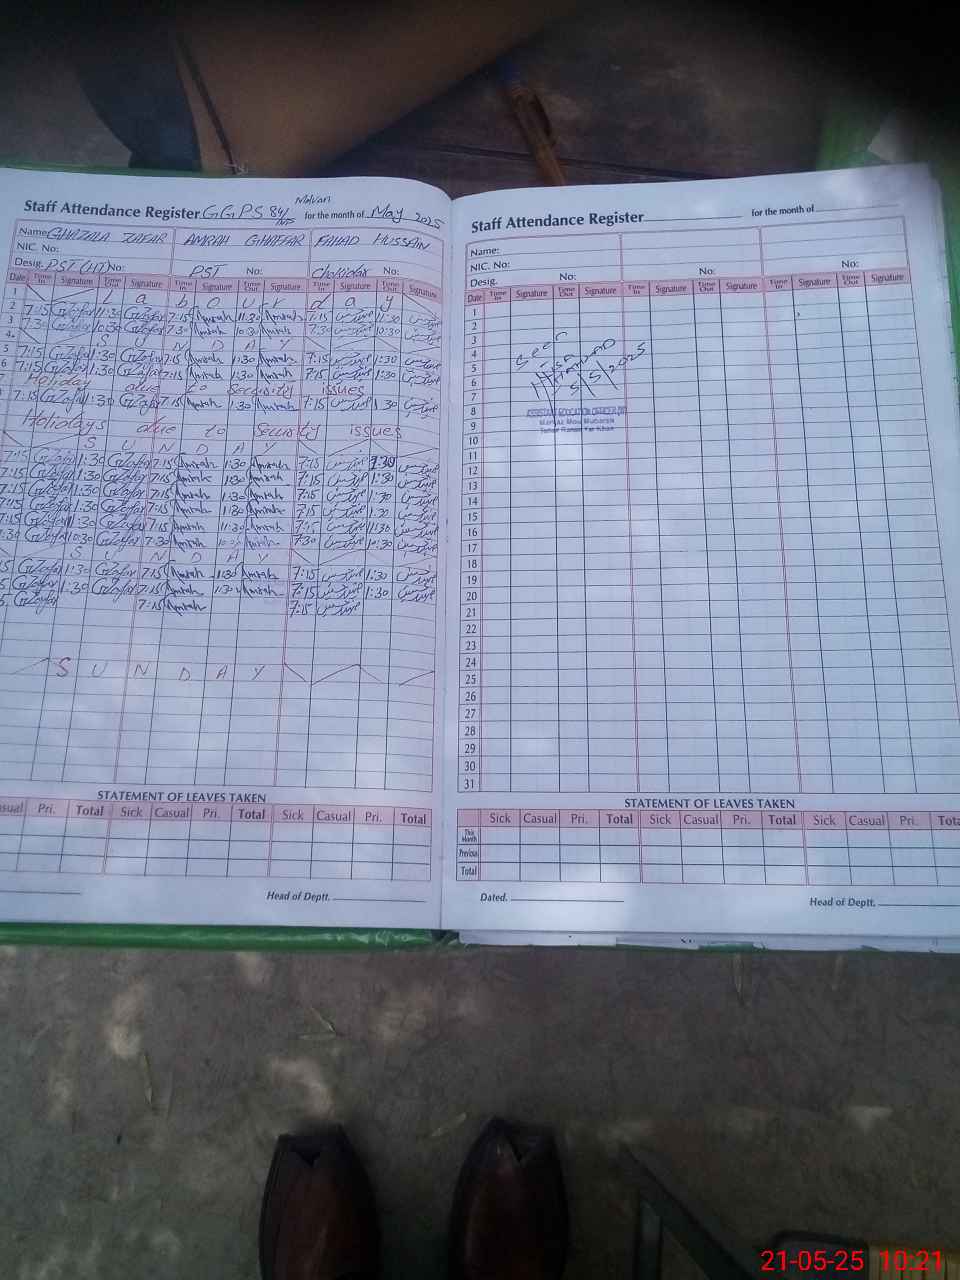 Staff Attendance Register GGPS 84/NP Malvani for the month of May 2025
Name: GHAZALA ZAFAR AMRAH GHAFFAR FAHAD HUSSAIN
NIC. No:
Desig. PST (HT) No: PST No: Chokidar No:
Date Time In Signature Time Out Signature Time In Signature Time Out Signature Time In Signature Time Out Signature
1 Labour day
2 7:15 GZafar 11:30 GZafar 7:15 Amrah 11:30 Amrah 7:15 11:30
3 7:30 GZafar 10:30 GZafar 7:30 Amrah 10:30 Amrah 7:30 10:30
4 SUNDAY
5 7:15 GZafar 1:30 GZafar 7:15 Amrah 1:30 Amrah 7:15 1:30
6 7:15 GZafar 1:30 GZafar 7:15 Amrah 1:30 Amrah 7:15 1:30
Holiday due to Security issues
7:15 GZafar 1:30 GZafar 7:15 Amrah 1:30 Amrah 7:15 1:30
Holidays due to Security issues
SUNDAY
7:15 GZafar 1:30 GZafar 7:15 Amrah 1:30 Amrah 7:15 1:30
7:15 GZafar 1:30 GZafar 7:15 Amrah 1:30 Amrah 7:15 1:30
7:15 GZafar 1:30 GZafar 7:15 Amrah 1:30 Amrah 7:15 1:30
7:15 GZafar 1:30 GZafar 7:15 Amrah 1:30 Amrah 7:15 1:30
7:15 GZafar 11:30 GZafar 7:15 Amrah 11:30 Amrah 7:15 11:30
7:30 GZafar 10:30 GZafar 7:30 Amrah Amrah 7:30 10:30
SUNDAY
GZafar 1:30 GZafar 7:15 Amrah 1:30 Amrah 7:15 1:30
GZafar 1:30 GZafar 7:15 Amrah 1:30 Amrah 7:15 1:30
GZafar 7:15 Amrah 7:15
SUNDAY
STATEMENT OF LEAVES TAKEN
Pri. Total Sick Casual Pri. Total Sick Casual Pri. Total
Head of Deptt.
Staff Attendance Register for the month of
Name:
NIC. No:
Desig. No: No: No:
Date Time In Signature Time Out Signature Time In Signature Time Out Signature Time In Signature Time Out Signature
1
2
3
4 Seen
5
6 5/5/2025
7
8 ASSISTANT EDUCATION OFFICER
9 Markaz Mou Mubarik
10
11
12
13
14
15
16
17
18
19
20
21
22
23
24
25
26
27
28
29
30
31
STATEMENT OF LEAVES TAKEN
Sick Casual Pri. Total Sick Casual Pri. Total Sick Casual Pri. Total
This Month
Previous
Total
Dated. Head of Deptt.
21-05-25 10:21